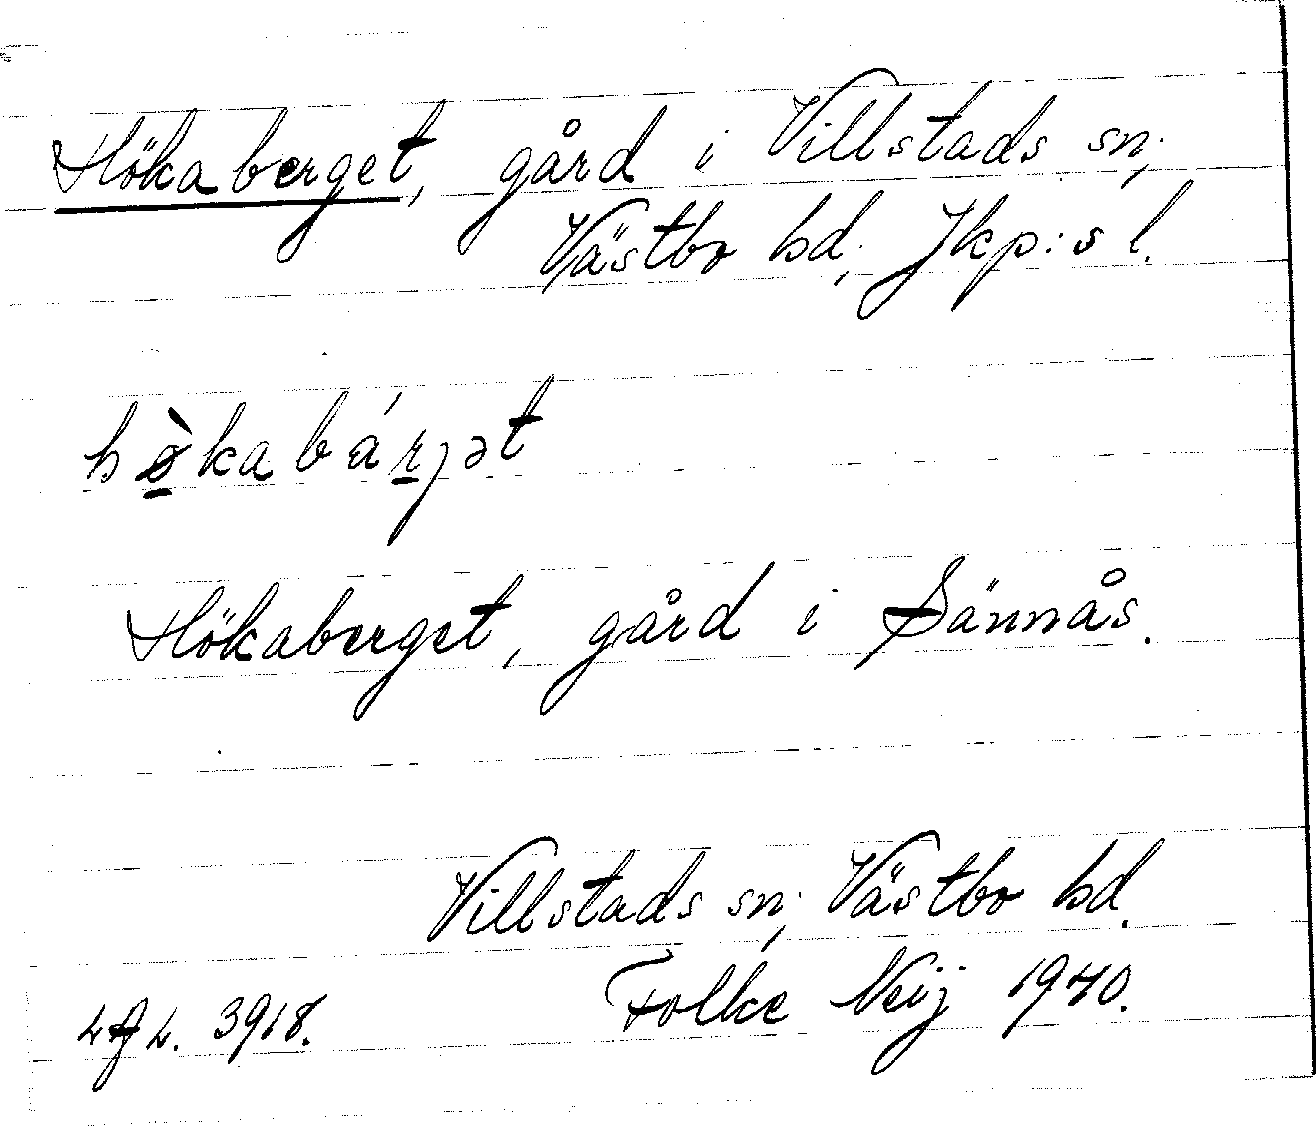 Hökaberget, gård i Villstads sn;
Västbo hd; Jkp:s l.
hø̀kabárjət
Hökaberget, gård i Sännås.
Villstads sn; Västbo hd.
Folke Neij 1940.
3918.